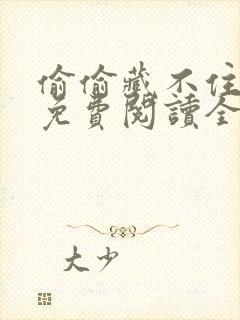 偷偷藏不住
免費閱讀全
大少